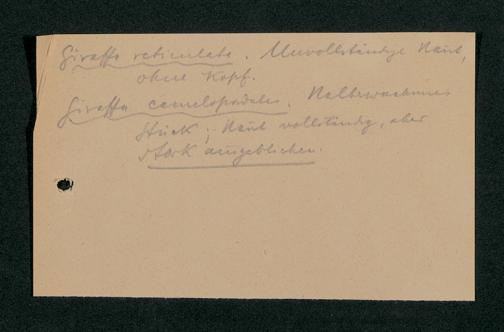 Giraffa reticulata. Unvollständige Haut,
ohne Kopf.
Giraffa camelopardalis. Halberwachsenes
Stück; Haut vollständig, aber
stark ausgeblichen.